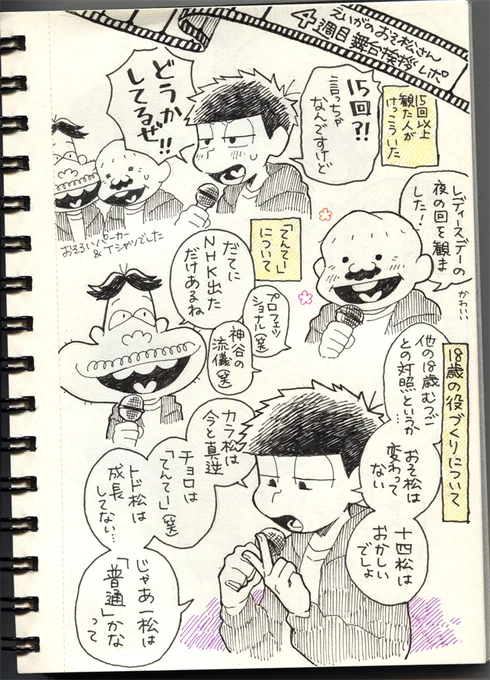 えいがのおそ松さん
4週目舞台挨拶レポ
15回以上
観た人が
けっこういた
15回?!
言っちゃ
なんですけど
どうか
してるぜ!!
おそろいパーカー
&Tシャツでした
レディースデーの
夜の回を観ま
した!
かわいい
「てんてー」
について
だてに
NHK出た
だけあるね
プロフェッ
ショナル(笑)
神谷の
流儀(笑)
18歳の役づくりについて
他の18歳むつご
との対照というか
おそ松は
変わって
ない
十四松は
おかしい
でしょ
カラ松は
今と真逆
チョロは
「てんてー」(笑)
トド松は
成長
してない…
じゃあ一松は
「普通」かな
って